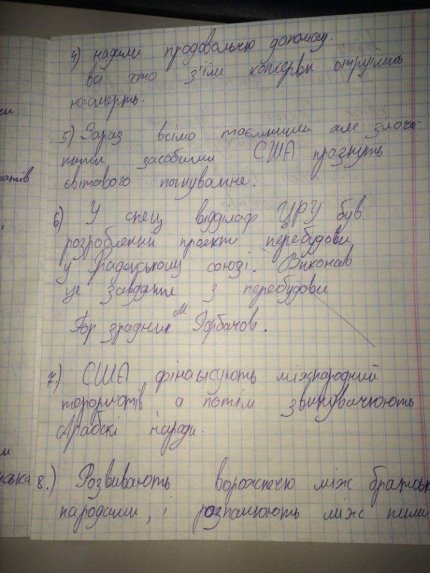 4) надали продовольчю допомогу.
всі хто з'їли консерви отруїлись
насмерть.
5) Зараз всіма таємними але злочи
ними засобами США прагнуть
світового панування.
6) У спец відділах ЦРУ був
розроблений проект перебудови
у Радянському союзі. Виконав
це завдання з перебудови
зрадник М Горбачов.
7) США фінансують міжнародний
терористів а потім звинувачюють
Арабскі народи.
8.) Розвивають ворожнечю між братськ
народами, і розпалюють між ними